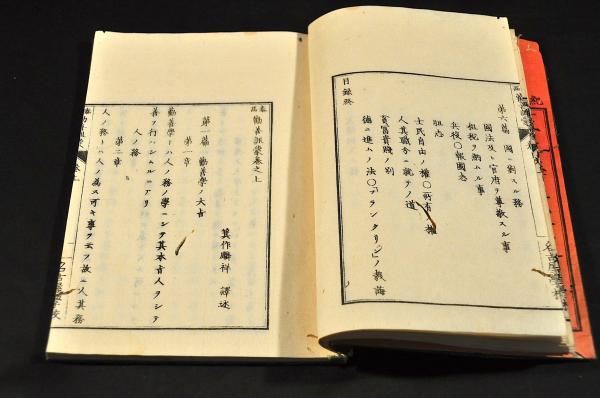 第六篇 國ニ對スル務
國法及ヒ官府ヲ尊敬スル事
租税ヲ納ムル事
兵役〇報國志
胆志
士民自由ノ權〇所有ノ權
人其職分ニ就テノ道
貧富貴賤ノ別
德ニ進ムノ法〇フランクリンノ教誨
目録終
泰西 勸善訓蒙巻之上
箕作麟祥 譯述
第一篇 勸善學ノ大旨
第一章
勸善學トハ人ノ務ノ學ニシテ其本旨人ヲシテ
善ヲ行ハシムルニアリ
第二章
人ノ務
人ノ務トハ人ノ為ス可キ事ヲ云フ故ニ人其務